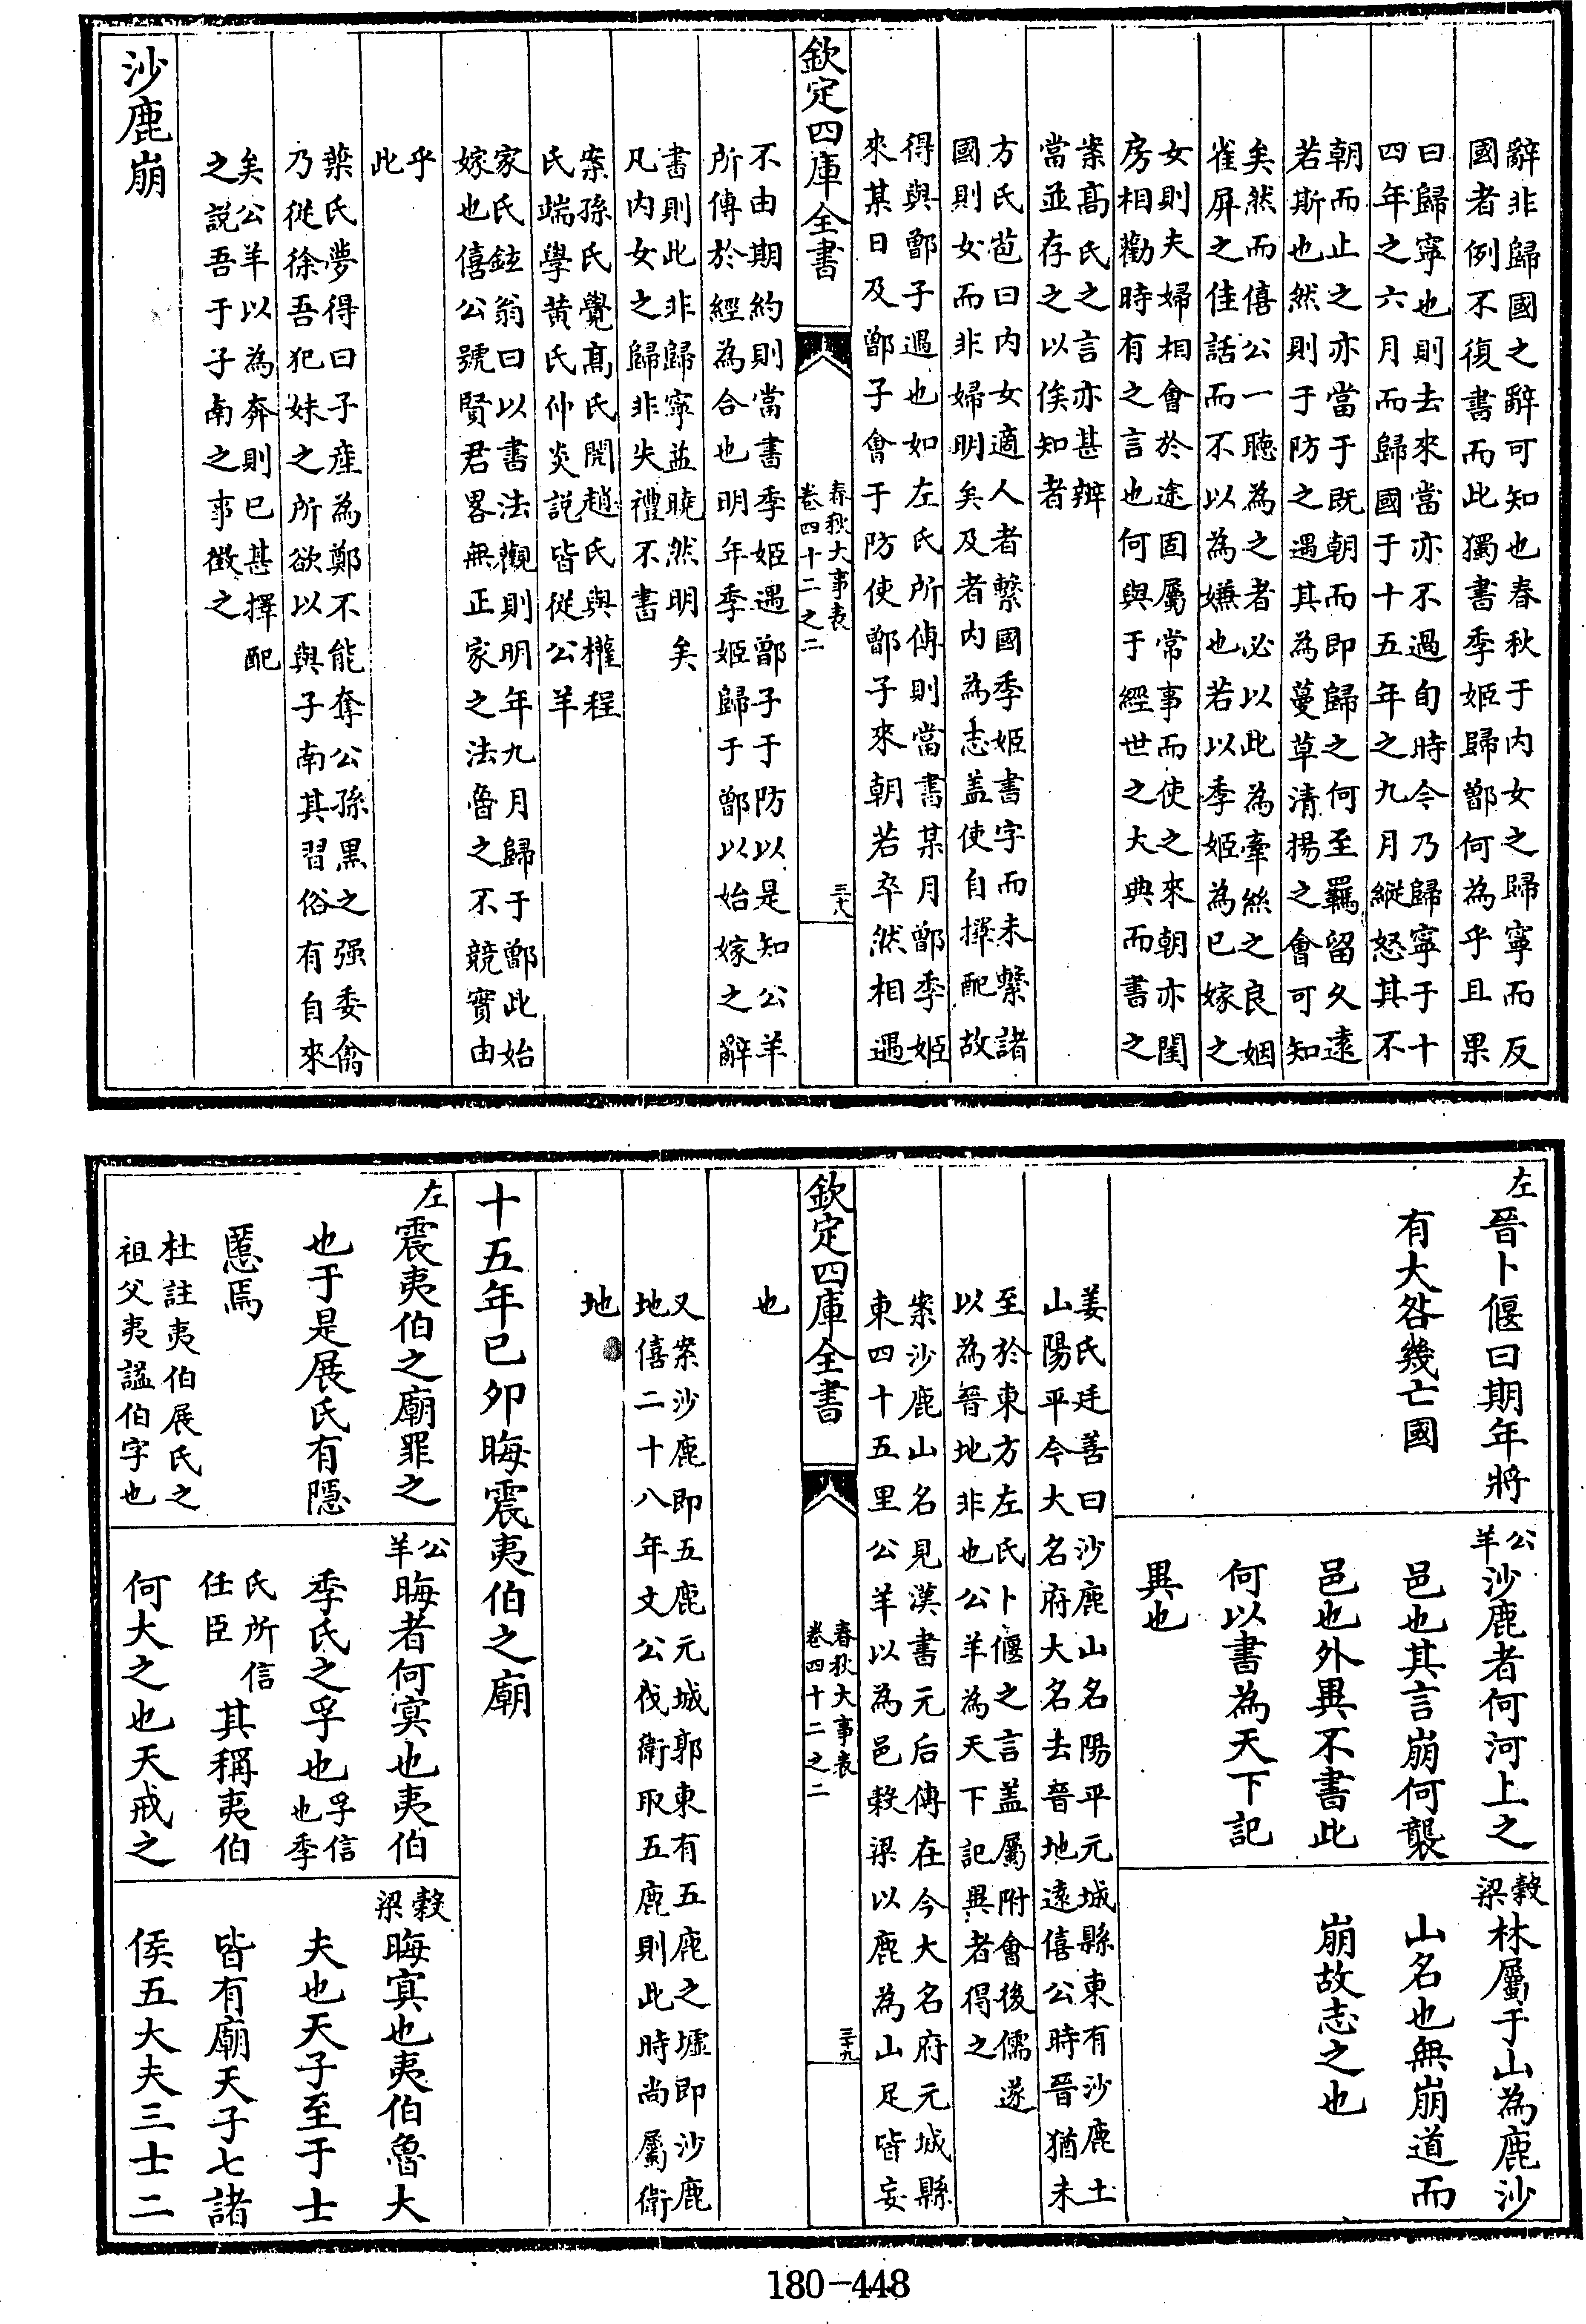 辭非歸國之辭可知也春秋于内女之歸寧而反
國者例不復書而此獨書季姬歸鄫何為乎且果
曰歸寧也則去來當亦不過旬時今乃歸寧于十
四年之六月而歸國于十五年之九月縱怒其不
朝而止之亦當于既朝而即歸之何至羈留久遠
若斯也然則于防之遇其為蔓草清揚之會可知
矣然而僖公一聽為之者必以此為牽絲之良姻
雀屏之佳話而不以為嫌也若以季姬為已嫁之
女則夫婦相會於途固屬常事而使之來朝亦閨
房相勸時有之言也何與于經世之大典而書之
案髙氏之言亦甚辨
當並存之以俟知者
方氏苞曰内女適人者繫國季姬書字而未繫諸
國則女而非婦明矣及者内為志盖使自擇配故
得與鄫子遇也如左氏所傳則當書某月鄫季姬
來某日及鄫子會于防使鄫子來朝若卒然相遇
欽定四庫全書
春秋大事表
卷四十二之二
三十八
不由期約則當書季姬遇鄫子于防以是知公羊
所傳於經為合也明年季姬歸于鄫以始嫁之辭
書則此非歸寧益曉然明矣
凡内女之歸非失禮不書
案孫氏覺髙氏閌趙氏與權程
氏端學黄氏仲炎説皆從公羊
家氏鉉翁曰以書法觀則明年九月歸于鄫此始
嫁也僖公號賢君畧無正家之法魯之不競實由
乎
此
葉氏夢得曰子産為鄭不能奪公孫黒之强委禽
乃從徐吾犯妹之所欲以與子南其習俗有自來
矣公羊以為奔則已甚擇配
之説吾于子南之事徴之
沙鹿崩
左
晉卜偃曰期年將
有大咎幾亡國
公羊
沙鹿者何河上之
邑也其言崩何襲
邑也外異不書此
何以書為天下記
異也
穀梁
林屬于山為鹿沙
山名也無崩道而
崩故志之也
姜氏廷善曰沙鹿山名陽平元城縣東有沙鹿土
山陽平今大名府大名去晉地逺僖公時晉猶未
至於東方左氏卜偃之言盖屬附會後儒遂
以為晉地非也公羊為天下記異者得之
案沙鹿山名見漢書元后傳在今大名府元城縣
東四十五里公羊以為邑穀梁以鹿為山足皆妄
欽定四庫全書
春秋大事表
卷四十二之二
三十九
也
又案沙鹿即五鹿元城郭東有五鹿之墟即沙鹿
地僖二十八年文公伐衛取五鹿則此時尚屬衛
地
十五年己卯晦震夷伯之廟
左
震夷伯之廟罪之
也于是展氏有隱
慝焉
杜註夷伯展氏之
祖父夷謚伯字也
公羊
晦者何冥也夷伯
季氏之孚也孚信也季
氏所信任臣其稱夷伯
何大之也天戒之
穀梁
晦冥也夷伯魯大
夫也天子至于士
皆有廟天子七諸
侯五大夫三士二
180-448